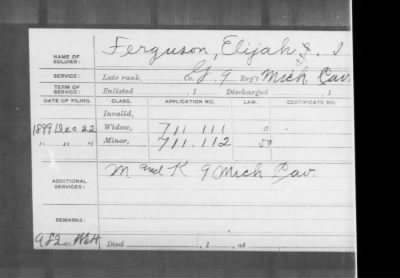 NAME OF SOLDIER: Ferguson, Elijah
SERVICE: Late rank, Co. G. 9 Reg't Mich Cav.
TERM OF SERVICE: Enlisted , 1 Discharged , 1
DATE OF FILING. CLASS. APPLICATION NO. LAW. CERTIFICATE NO.
Invalid,
1899 Dec 22 Widow, 711.111 0 -
" " " Minor, 711.112 50
ADDITIONAL SERVICES: M and K 9 Mich Cav.
REMARKS:
Died , 1 , at